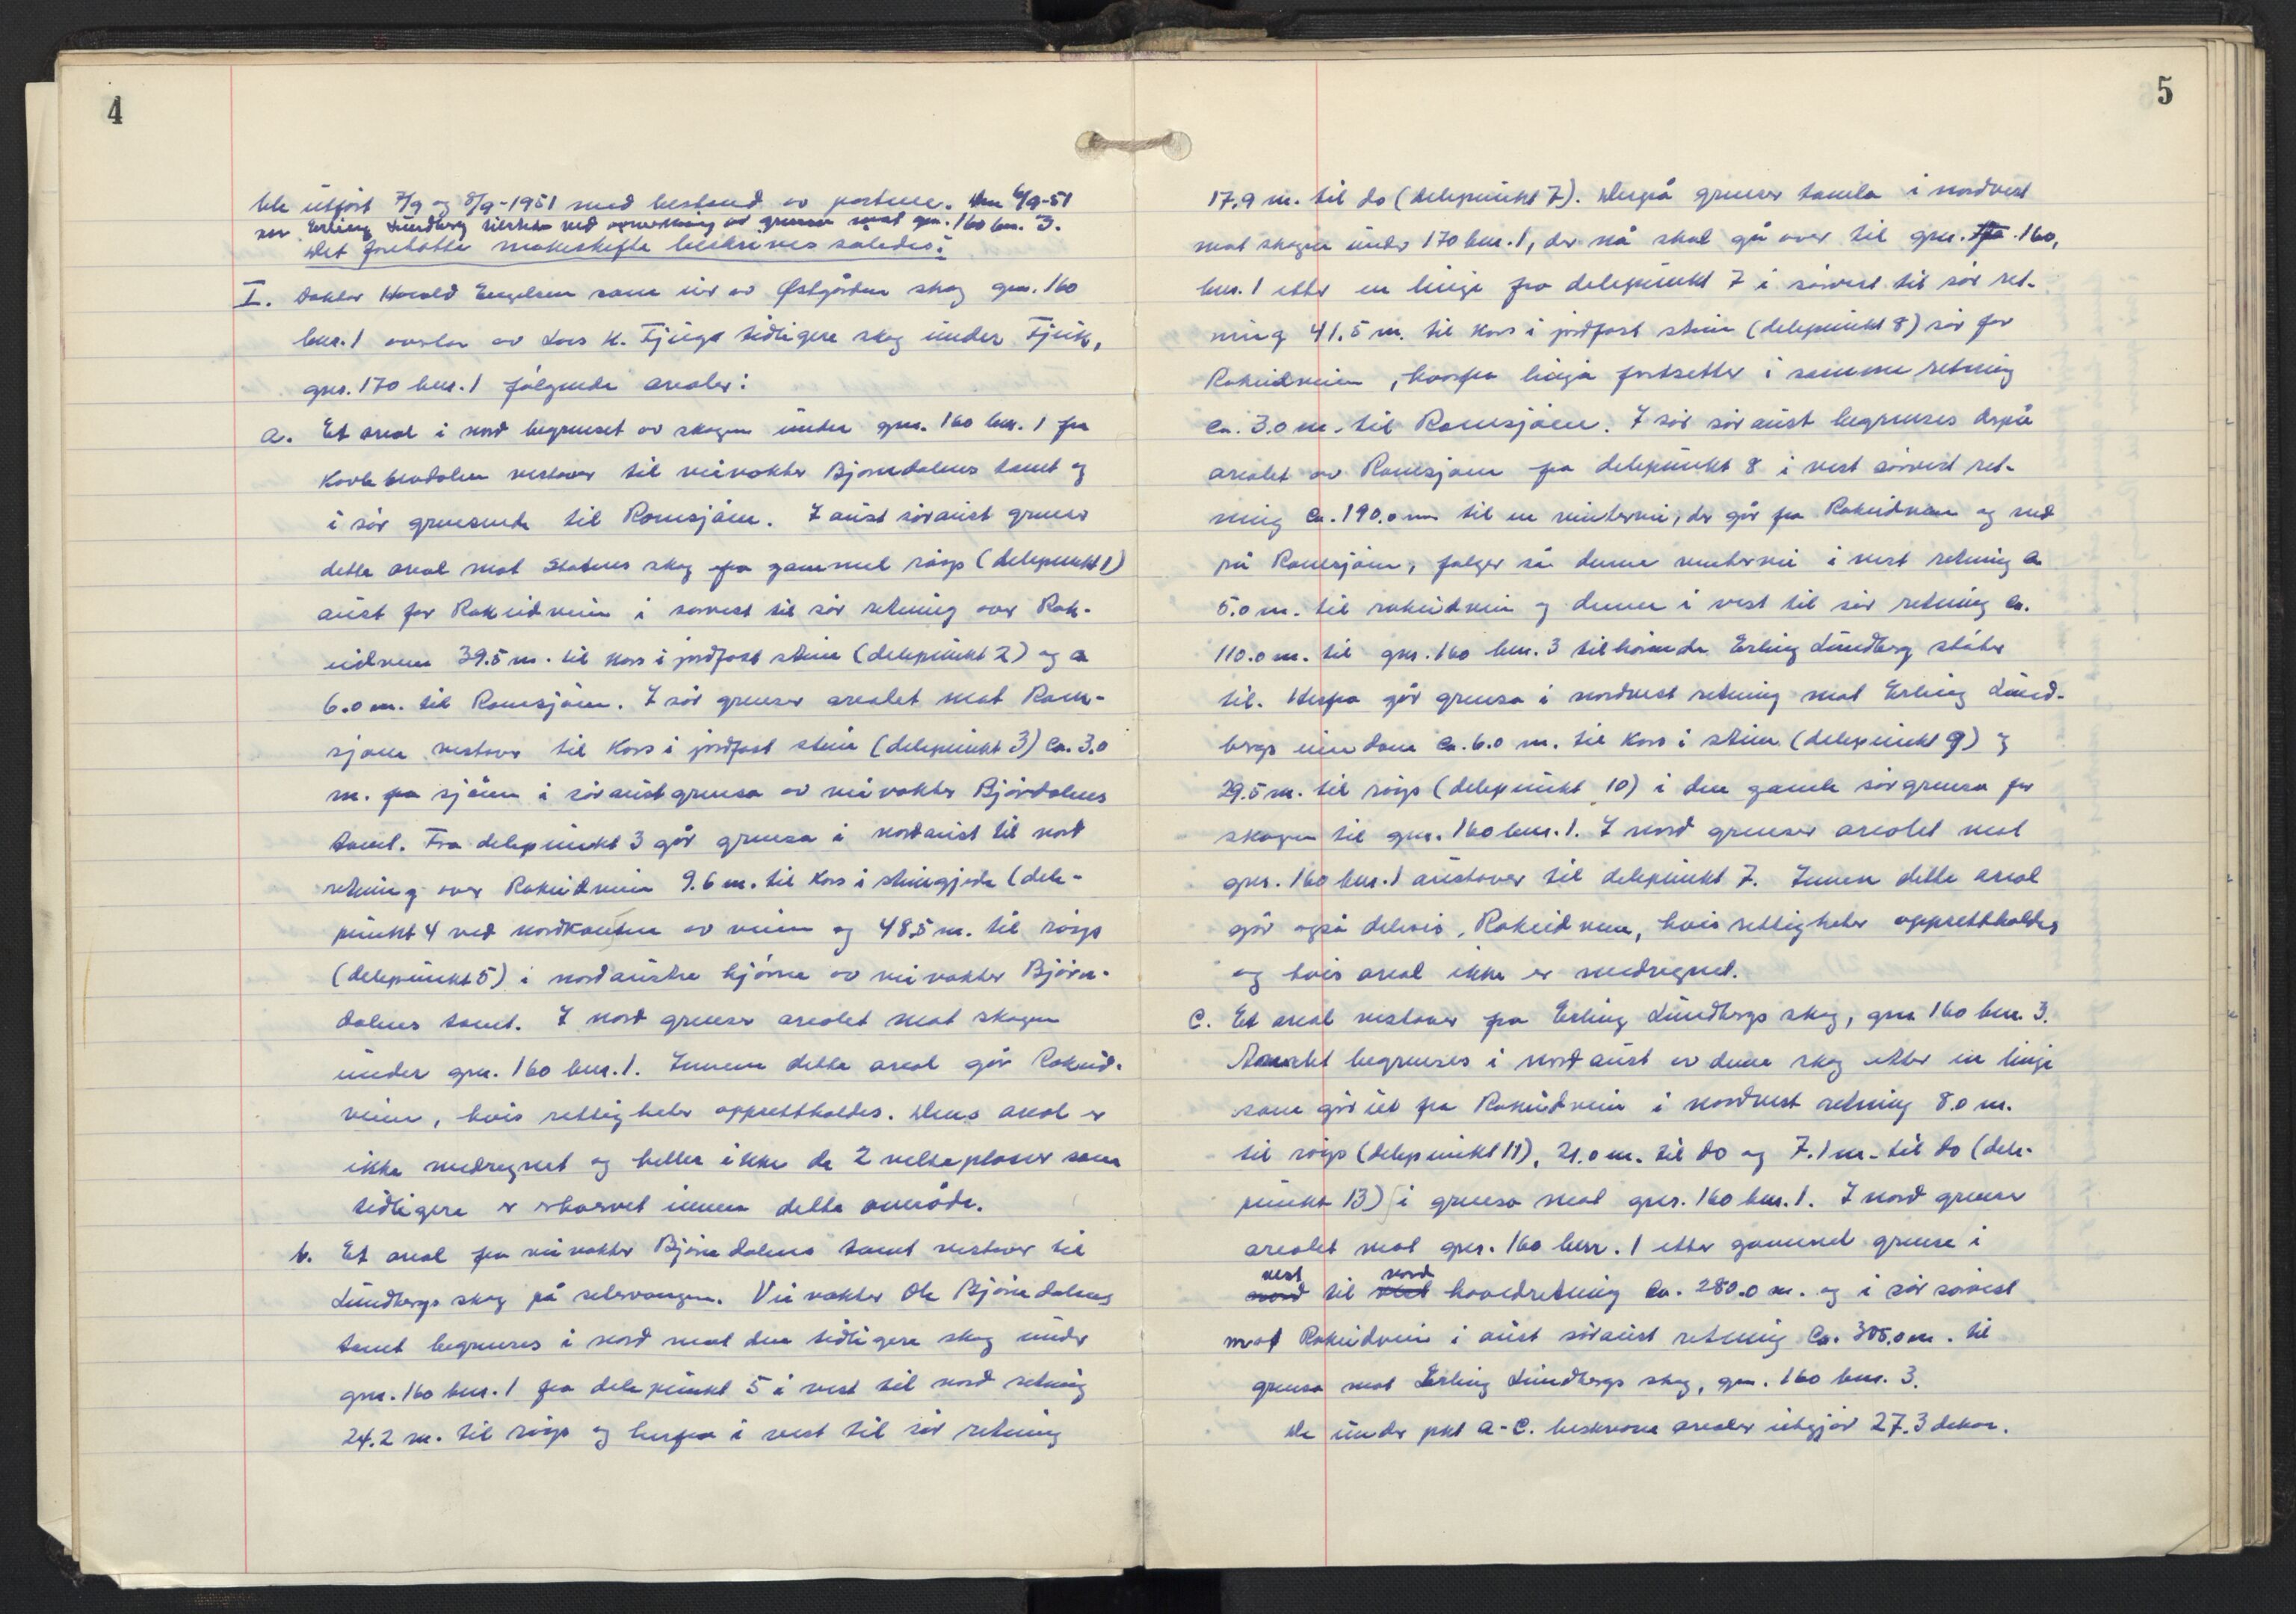 4
ble utført 7/9 og 8/9-1951 med bestand av partene. Den 6/9-51
var Erling Lundberg tilstede ved oppmerking av grensen mot gnr. 160 bnr. 3.
Det foretatte makeskifte beskrives således:
I. Doktor Harald Engelsen som eier av Østgården skog gnr. 160
bnr. 1 overtar av Lars H. Fjuge tidligere skog under Fjuk,
gnr. 170 bnr. 1 følgende arealer:
a. Et areal i nord begrenset av skogen under gnr. 160 bnr. 1 fra
vestover til veivokter Bjørndalens tomt og
i sør grensende til Romsjøen. I aust søraust grenser
dette areal mot Statens skog fra gammel røys (delepunkt 1)
aust for Rokeidveien i sørvest til sør retning over Rok-
eidveien 39.5 m. til kors i jordfast stein (delepunkt 2) og ca
6.0 m. til Romsjøen. I sør grenser arealet mot Rom-
sjøen vestover til kors i jordfast stein (delepunkt 3) ca. 3.0
m. fra sjøen i søraustgrensa av veivokter Bjørdalens
tomt. Fra delepunkt 3 går grensa i nordaust til nord
retning over Rokeidveien 9.6 m. til kors i steingjerde (dele-
punkt 4 ved nordkanten av veien og 48.5 m. til røys
(delepunkt 5) i nordaustre hjørne av veivokter Bjørn-
dalens tomt. I nord grenser arealet mot skogen
under gnr. 160 bnr. 1. Innen dette areal går Rokeid-
veien, hvis rettigheter opprettholdes. Dens areal er
ikke medregnet og heller ikke de 2 velteplasser som
tidligere er ervervet innen dette område.
b. Et areal fra veivokter Bjørndalens tomt vestover til
Lundbergs skog på setervangen. Veivokter Ole Bjørndalens
tomt begrenses i nord mot den tidligere skog under
gnr. 160 bnr. 1 fra delepunkt 5 i vest til nord retning
24.2 m. til røys og herfra i vest til sør retning
5
17.9 m. til do (delepunkt 7). Derpå grenser tomta i nordvest
mot skogen under 170 bnr. 1, der nå skal gå over til gnr. 160,
bnr. 1 etter en linje fra delepunkt 7 i sørvest til sør ret-
ning 41.5 m. til kors i jordfast stein (delepunkt 8) sør for
Rokeidveien, hvorfra linja fortsetter i samme retning
ca. 3.0 m. til Romsjøen. I sør søraust begrenses derpå
arealet av Romsjøen fra delepunkt 8 i vest sørvest ret-
ning ca. 190.0 m til en vintervei, der går fra Rokeidveien og ned
på Romsjøen, følger så denne vintervei i vest retning ca
5.0 m. til rokeidveien og denne i vest til sør retning ca.
110.0 m. til gnr. 160 bnr. 3 tilhørende Erling Lundberg støter
til. Herfra går grensa i nordvest retning mot Erling Lund-
bergs eiendom ca. 6.0 m. til kors i stein (delepunkt 9) og
29.5 m. til røys (delepunkt 10) i den gamle sørgrensa for
skogen til gnr. 160 bnr. 1. I nord grenser arealet mot
gnr. 160 bnr. 1 austover til delepunkt 7. Innen dette areal
går også delvis, Rokeidveien, hvis rettigheter opprettholdes
og hvis areal ikke er medregnet.
c. Et areal vestover fra Erling Lundbergs skog, gnr 160 bnr. 3.
begrenses i nordaust av denne skog etter en linje
som går ut fra Rokeidveien i nordvest retning 8.0 m.
til røys (delepunkt 11), 21.0 m. til do og 7.1 m. til do (dele-
punkt 13) i grensa mot gnr. 160 bnr. 1. I nord grenser
arealet mot gnr. 160 bnr. 1 etter gammel grense i
vest nord
nord til vest hovedretning ca. 280.0 m. og i sør sørvest
mot Rokeidveien i aust søraust retning ca. 305.0 m. til
grensa mot Erling Lundbergs skog, gnr. 160 bnr. 3.
De under pkt a-c. beskrevne arealer utgjør 27.3 dekar.